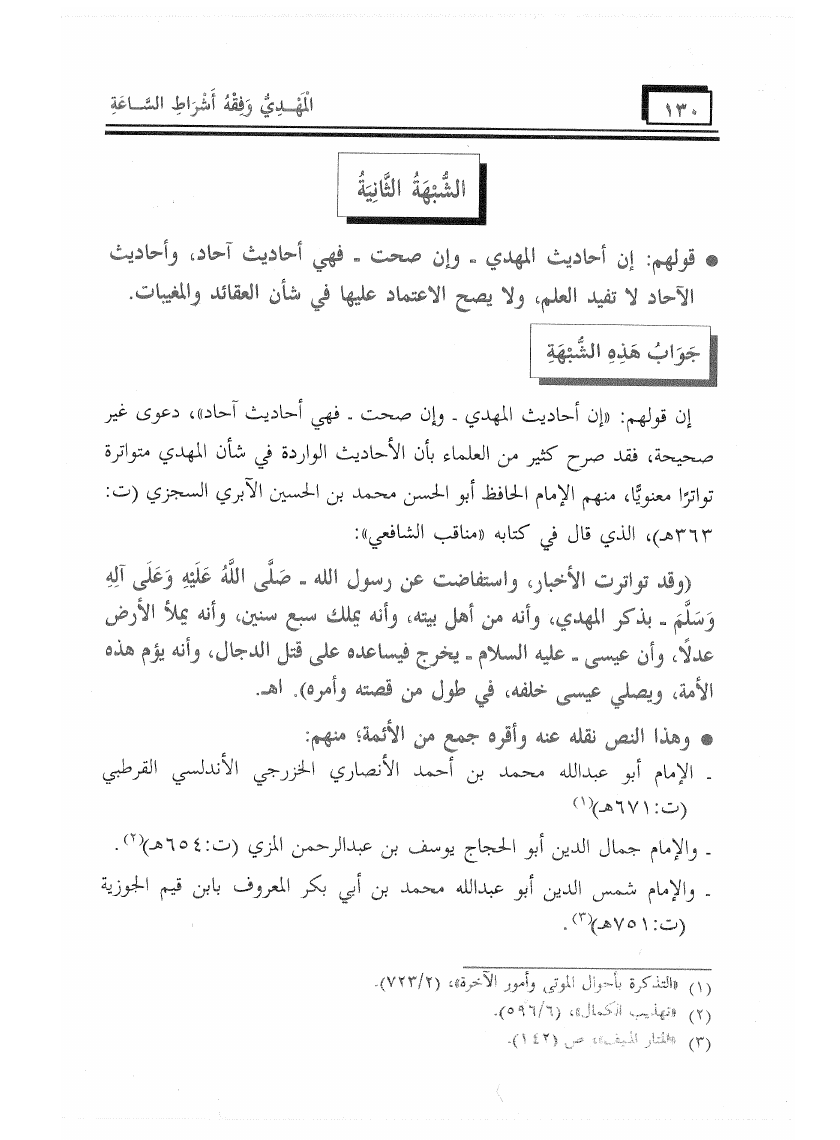 ١٣٠
الْمَهْـدِيُّ وَفِقْهُ أَشْرَاطِ السَّـاعَةِ
الشُّبْهَةُ الثَّانِيَةُ
● قولهم: إن أحاديث المهدي ـ وإن صحت ـ فهي أحاديث آحاد، وأحاديث
الآحاد لا تفيد العلم، ولا يصح الاعتماد عليها في شأن العقائد والمغيبات.
جَوَابُ هَذِهِ الشُّبْهَةِ
إن قولهم: «إن أحاديث المهدي ـ وإن صحت ـ فهي أحاديث آحاد»، دعوى غير
صحيحة، فقد صرح كثير من العلماء بأن الأحاديث الواردة في شأن المهدي متواترة
تواترًا معنويًّا، منهم الإمام الحافظ أبو الحسن محمد بن الحسين الآبري السجزي (ت:
٣٦٣هـ)، الذي قال في كتابه «مناقب الشافعي»:
(وقد تواترت الأخبار، واستفاضت عن رسول الله ـ صَلَّى اللَّهُ عَلَيْهِ وَعَلَى آلِهِ
وَسَلَّمَ ـ بذكر المهدي، وأنه من أهل بيته، وأنه يملك سبع سنين، وأنه يملأ الأرض
عدلًا، وأن عيسى ـ عليه السلام ـ يخرج فيساعده على قتل الدجال، وأنه يؤم هذه
الأمة، ويصلي عيسى خلفه، في طول من قصته وأمره). اهـ.
● وهذا النص نقله عنه وأقره جمع من الأئمة؛ منهم:
ـ الإمام أبو عبدالله محمد بن أحمد الأنصاري الخزرجي الأندلسي القرطبي
(ت: ٦٧١هـ)(١)
ـ والإمام جمال الدين أبو الحجاج يوسف بن عبدالرحمن المزي (ت: ٦٥٤هـ)(٢).
ـ والإمام شمس الدين أبو عبدالله محمد بن أبي بكر المعروف بابن قيم الجوزية
(ت: ٧٥١هـ)(٣).
(١) «التذكرة بأحوال الموتى وأمور الآخرة»، (٧٢٣/٢).
(٢) «تهذيب الكمال»، (٥٩٦/٦).
(٣) «المنار المنيف»، ص (١٤٢).